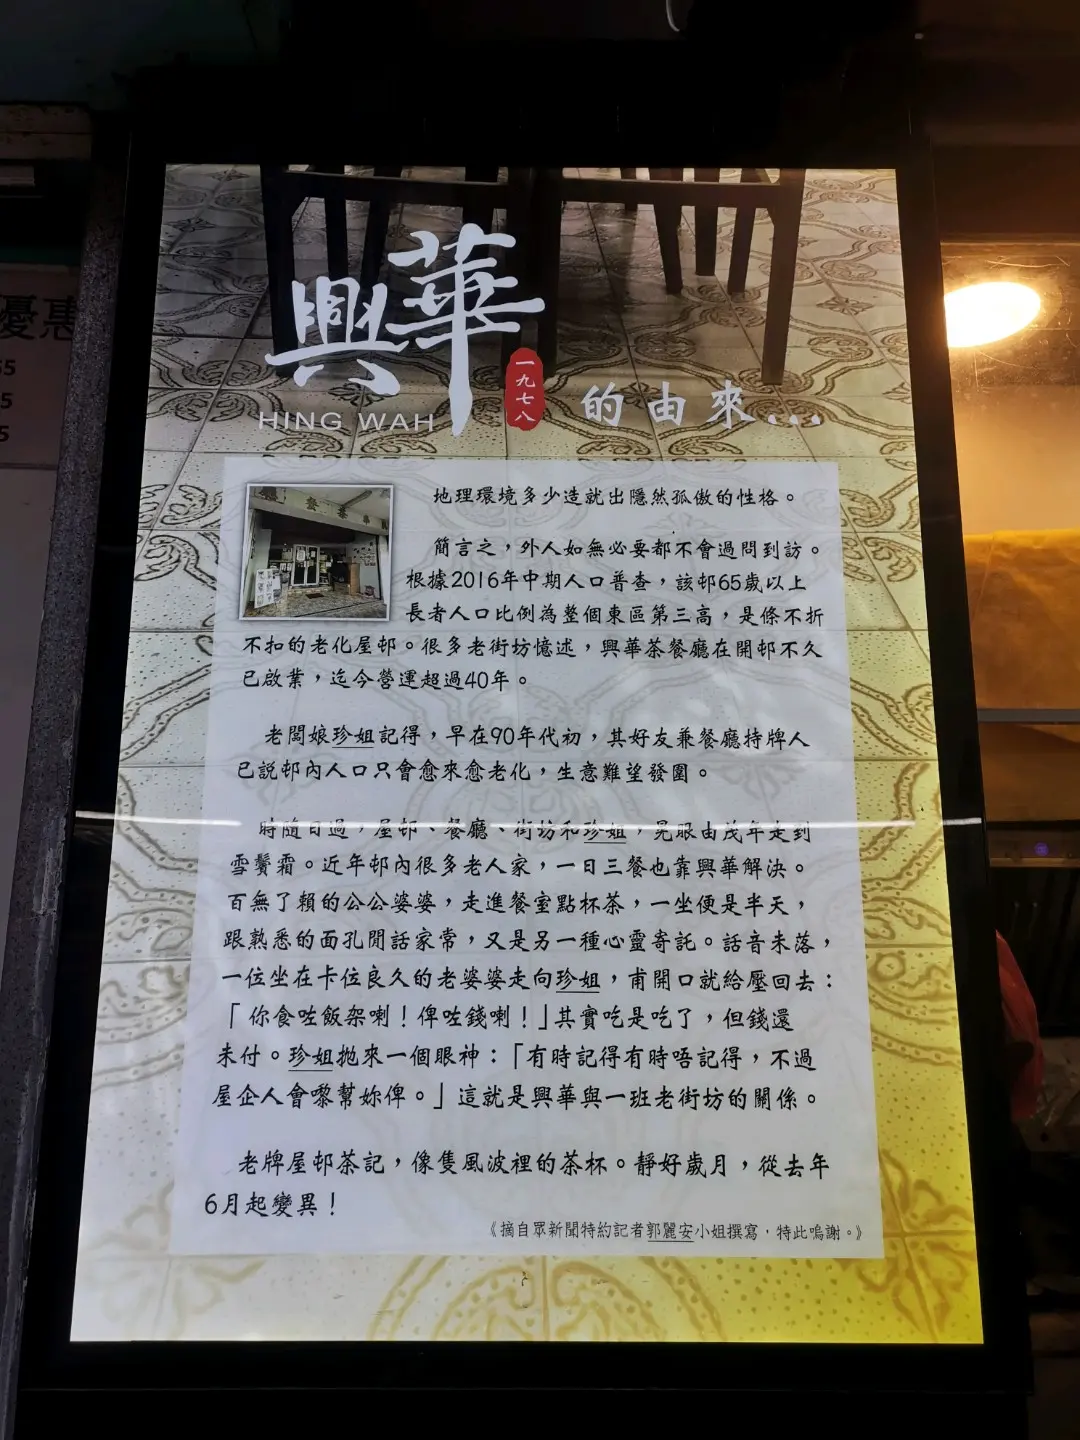 優惠
興華
一九七八
HING WAH
的由來...
地理環境多少造就出隱然孤傲的性格。
簡言之，外人如無必要都不會過問到訪。
根據2016年中期人口普查，該邨65歲以上
長者人口比例為整個東區第三高，是條不折
不扣的老化屋邨。很多老街坊憶述，興華茶餐廳在開邨不久
已啟業，迄今營運超過40年。
老闆娘珍姐記得，早在90年代初，其好友兼餐廳持牌人
已說邨內人口只會愈來愈老化，生意難望發圍。
時隨日過，屋邨、餐廳、街坊和珍姐，晃眼由茂年走到
雪鬢霜。近年邨內很多老人家，一日三餐也靠興華解決。
百無了賴的公公婆婆，走進餐室點杯茶，一坐便是半天，
跟熟悉的面孔閒話家常，又是另一種心靈寄託。話音未落，
一位坐在卡位良久的老婆婆走向珍姐，甫開口就給壓回去：
「你食咗飯架喇！俾咗錢喇！」其實吃是吃了，但錢還
未付。珍姐拋來一個眼神：「有時記得有時唔記得，不過
屋企人會嚟幫妳俾。」這就是興華與一班老街坊的關係。
老牌屋邨茶記，像隻風波裡的茶杯。靜好歲月，從去年
6月起變異！
《摘自眾新聞特約記者郭麗安小姐撰寫，特此鳴謝。》